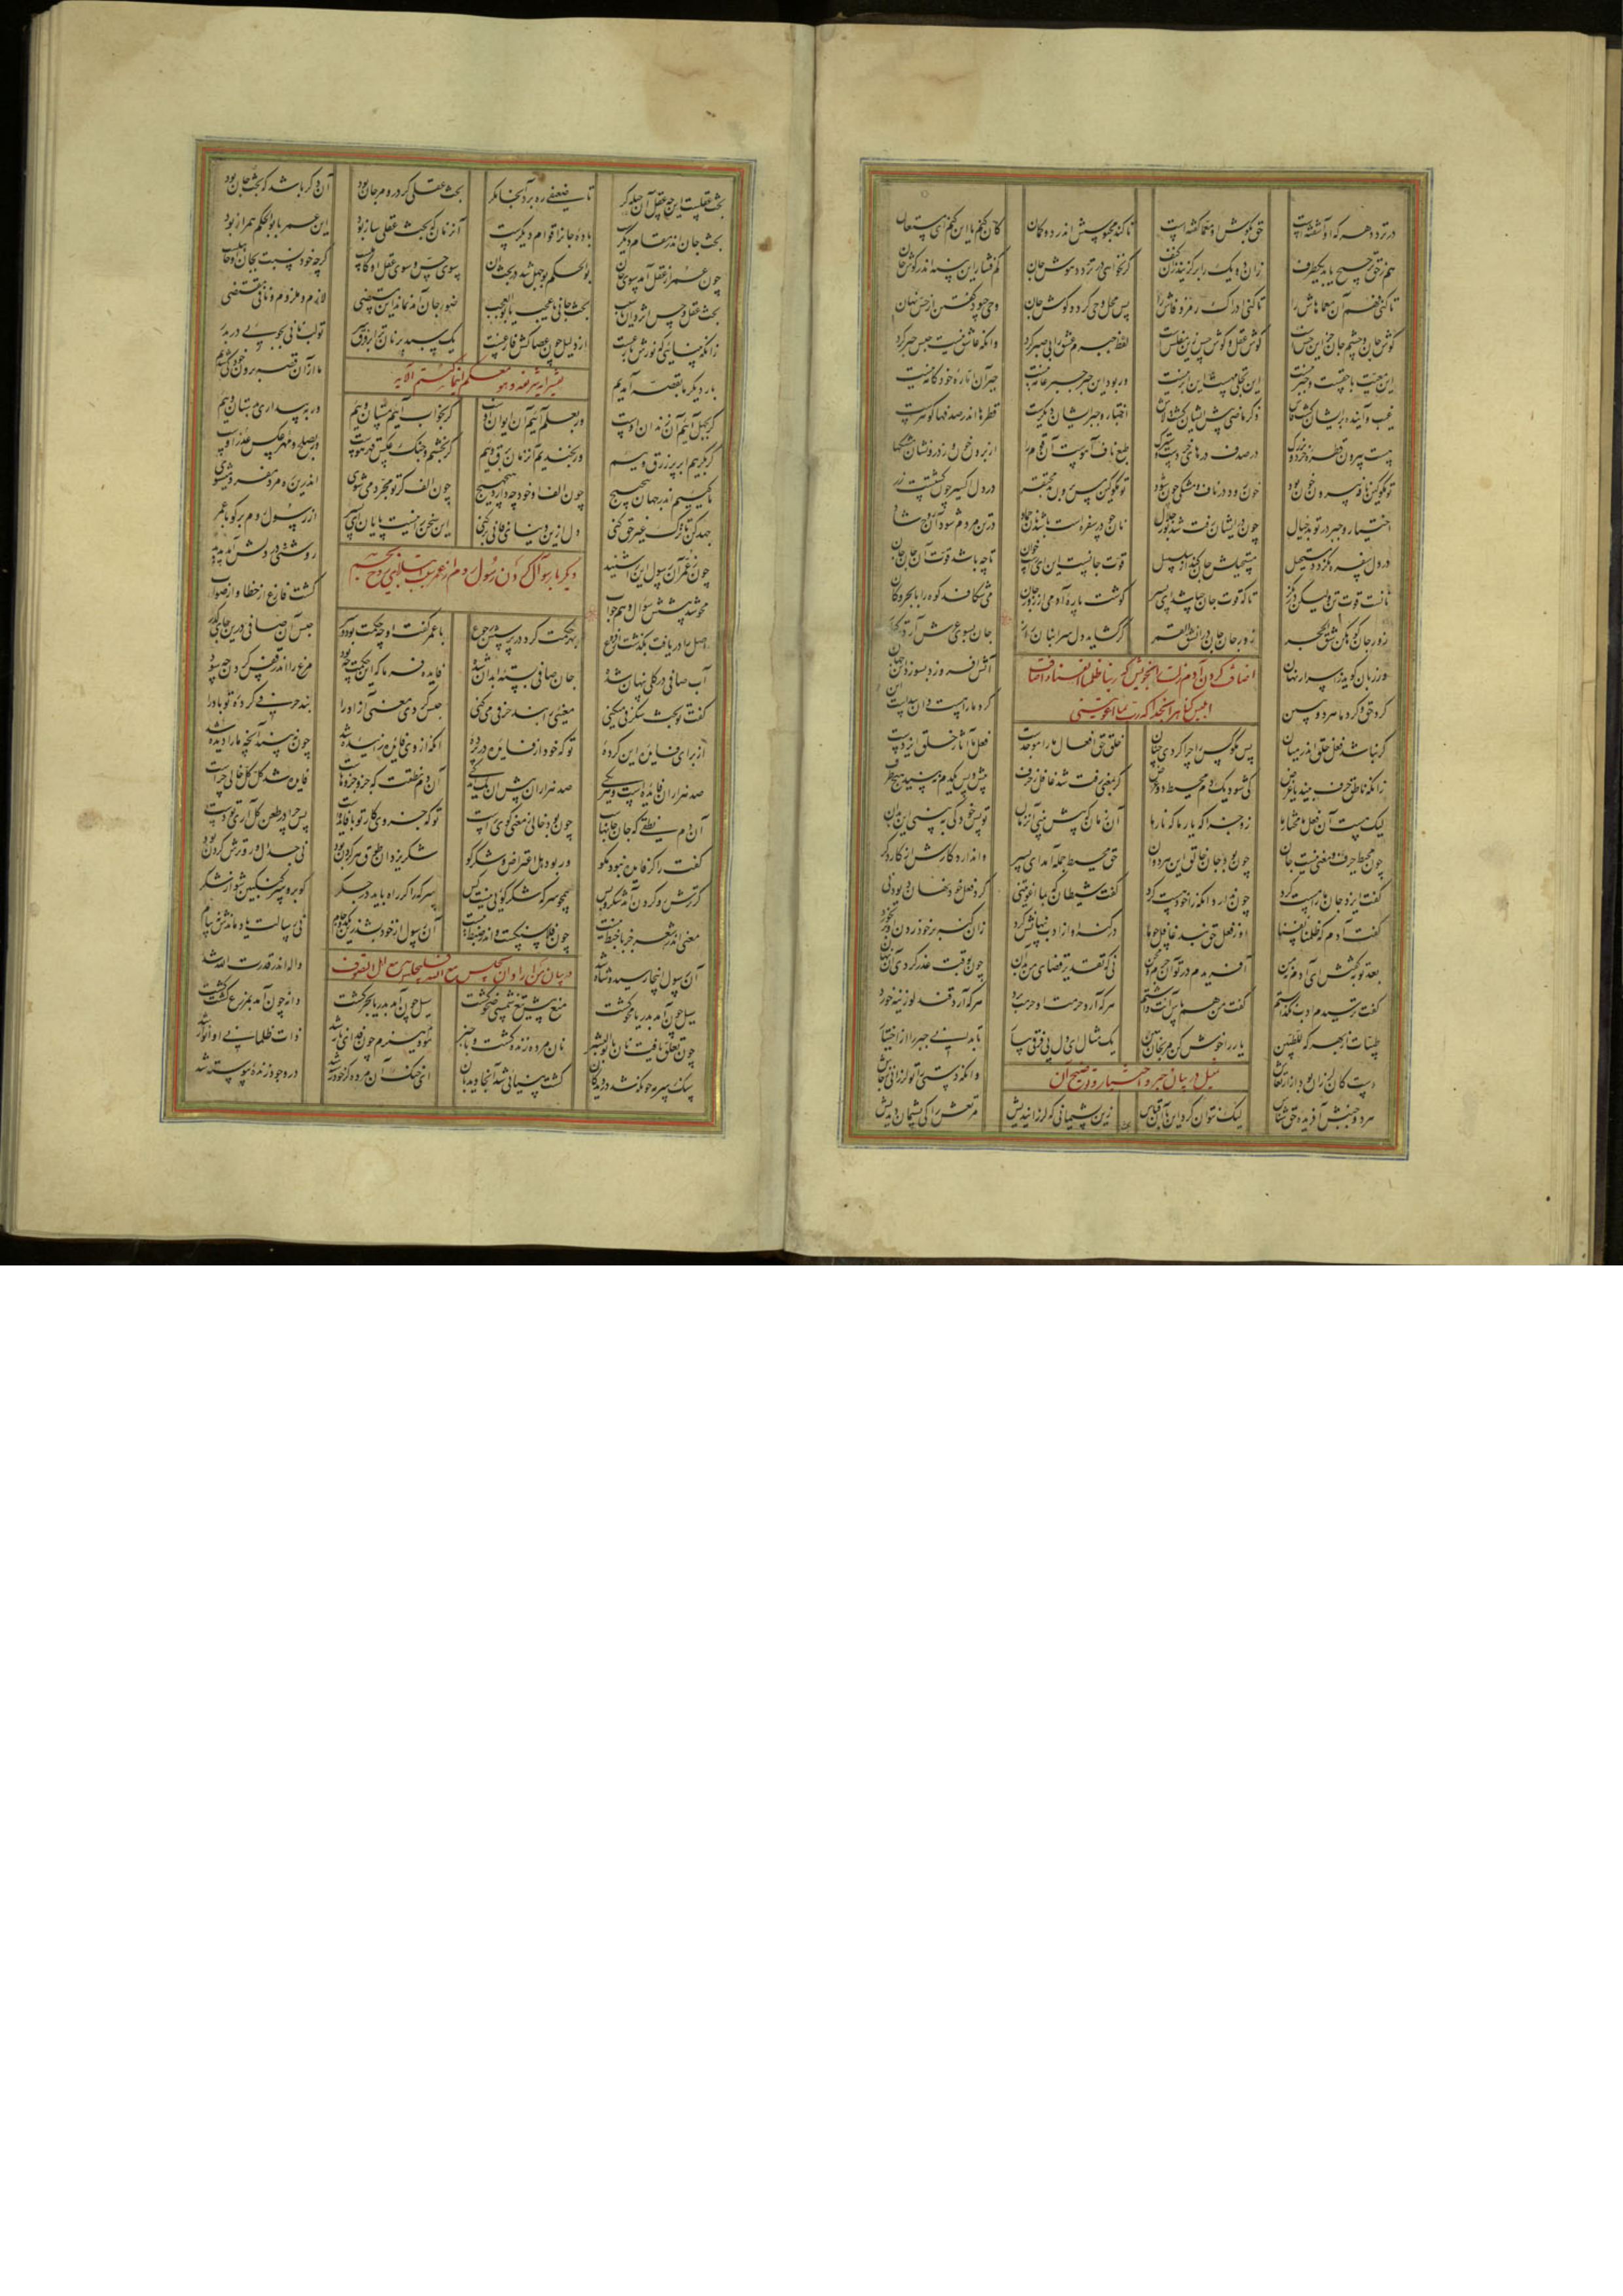 در تردد هر که او آشفته است حق بگوش او معما گفته است تا کند محبوسش اندر دو گمان کان کنم یا این کنم ای مستعان
هم ز حق ترجیح یابد یکطرف زان دو یک را برگزیند زان کنف گر نخواهی در تردد هوش جان کم فشار این پنبه اندر گوش جان
تا کنی فهم آن معماهاش را تا کنی ادراک رمز و فاش را پس محل وحی گردد گوش جان وحی چبود گفتن از حس نهان
گوش جان و چشم جان جز این حس است گوش عقل و گوش حس زین مفلس است لفظ جبرم عشق را بی صبر کرد وانکه عاشق نیست حبس جبر کرد
این معیت با حقست و جبر نیست این تجلی مه است این ابر نیست ور بود این جبر جبر عامه نیست جبر آن اماره خودکامه نیست
غیب و آینده بر ایشان گشت فاش ذکر ماضی پیش ایشان گشت لاش اختیار و جبر ایشان دیگرست قطرها اندر صدفها گوهرست
هست بیرون قطره خرد و بزرگ در صدف درهای خردست و سترگ طبع ناف آهوست آن قوم را از برون خون و ز درونشان مشکها
تو مگو کین نافه بیرون خون بود چون رود در ناف مشکی چون شود تو مگو کین مس برون بد محتقر در دل اکسیر چون گشتست زر
اختیار و جبر در تو بد خیال چون در ایشان رفت شد نور جلال نان چو در سفره است باشد آن جماد در تن مردم شود آن روح شاد
در دل سفره نگردد مستحیل مستحیلش جان کند از سلسبیل قوت جانست این ای راست خوان تا چه باشد قوت آن جان جان
نانست قوت تن ولیکن در نگر تا که قوت جان چه باشد ای پسر گوشت پاره آدمی از زور جان می شکافد کوه را با بحر و کان
زور جان کوه کن شق الحجر زور جان جان در انشق القمر گر گشاید دل سر انبان راز جان بسوی عرش آرد ترکتاز
ور زبان گوید ز اسرار نهان آتش افروزد بسوزد این جهان
اضافت کردن آدم زلت را بخویش که ربنا ظلمنا انفسنا و اضافت
ابلیس گناه را بخدا که رب بما اغویتنی
کرد حق و کرد ما هر دو ببین کرد ما را هست دان پیداست این
گر نباشد فعل خلق اندر میان پس مگو کس را چرا کردی چنان خلق حق افعال ما را موجدست فعل ما آثار خلق ایزدست
زانکه ناطق حرف بیند یا غرض کی شود یکدم محیط دو عرض گر بمعنی رفت شد غافل ز حرف پیش و پس یکدم نبیند هیچ طرف
لیک هست آن فعل ما مختار ما زو جزا گه یار ما گه نار ما آن زمان که پیش بینی آنزمان تو پس خود کی ببینی این بدان
چون محیط حرف و معنی نیست جان چون بود جان خالق این هر دوان حق محیط جمله آمد ای پسر وا ندارد کارش از کار دگر
گفت ایزد جان ما را مست کرد چون نداند آنکه را خود هست کرد گفت شیطان که بما اغویتنی کرد فعل خود نهان دیو دنی
گفت آدم که ظلمنا نفسنا او ز فعل حق نبد غافل چو ما در گنه او از ادب پنهانش کرد زان گنه بر خود زدن او بر بخورد
بعد توبه گفتش ای آدم نه من آفریدم در تو آن جرم و محن نی که تقدیر و قضای من بد آن چون بوقت عذر کردی آن نهان
گفت ترسیدم ادب نگذاشتم گفت من هم پاس آنت داشتم هر که آرد حرمت او حرمت برد هر که آرد قند لوزینه خورد
طیبات از بهر که للطیبین یار را خوش کن مرنجان و ببین یک مثال ای دل پی فرقی بیار تا بدانی جبر را از اختیار
دست کان لرزان بود از ارتعاش وانکه دستی تو بلرزانی ز جاش
تمثیل در بیان جبر و اختیار و توضیح آن
هر دو جنبش آفریده حق شناس لیک نتوان کرد این با آن قیاس زین پشیمانی که لرزانیدیش مرتعش را کی پشیمان دیدیش
بحث عقلست این چه عقل آن حیله گر تا ضعیفی ره برد آنجا مگر بحث عقلی گر در و مرجان بود آن دگر باشد که بحث جان بود
بحث جان اندر مقام دیگرست باده جانرا قوام دیگرست آنزمان که بحث عقلی ساز بود این عمر با بوالحکم همراز بود
چون عمر از عقل آمد سوی جان بوالحکم بوجهل شد در بحث آن سوی حس و سوی عقل او کاملست گرچه خود نسبت بجان او جاهلست
بحث عقل و حس اثر دان یا سبب بحث جانی یا عجب یا بوالعجب ضوء جان آمد نماند ای مستضی لازم و ملزوم و نافی مقتضی
زانکه بینائی که نورش بازغست از دلیل چون عصاکش فارغست
بار دیگر ما بقصه آمدیم ما از آن قصه برون خود کی شدیم
تفسیر آیه شریفه و هو معکم اینما کنتم الآیه
گر بجهل آئیم آن زندان اوست ور بعلم آئیم آن ایوان اوست گر بخواب آئیم مستان وییم ور به بیداری بدستان وییم
گر بگرییم ابر پر زرق وییم ور بخندیم آنزمان برق وییم گر بخشم و جنگ عکس قهر اوست ور بصلح و مهر عکس عذر اوست
ما کئیم اندر جهان پیچ پیچ چون الف او خود چه دارد هیچ هیچ چون الف گر تو مجرد می شوی اندرین ره مرد مفرد میشوی
جهد کن تا ترک غیر حق کنی دل ازین دنیای فانی بر کنی این سخن را نیست پایان ای پسر از رسول روم بر گو با عمر
دیگر بار سؤال کردن رسول روم از عمر
چون ز عمر آن رسول این را شنید روشنی در دلش آمد پدید
محو شد پیشش سؤال و هم جواب گشت فارغ از خطا و از صواب
اصل را دریافت بگذشت از فروع بهر حکمت کرد در پرسش رجوع با عمر گفت او چه حکمت بود و سر حبس آن صافی درین جای کدر
آب صافی در گلی پنهان شده جان صافی بسته ابدان شده فایده فرما که این حکمت چه بود مرغ را اندر قفس کردن چه سود
گفت تو بحث شگرفی میکنی معنیی را بند حرفی می کنی حبس کردی معنی آزاد را بند حرفی کرده تو باد را
از برای فایده این کرده تو که خود از فایده در پرده آنکه از وی فایده زاییده شد چون نبیند آنچه ما را دیده شد
صد هزاران فایده است و هر یکی صد هزاران پیش آن یک اندکی آن دم نطقت که جزو جزوهاست فایده شد کل کل خالی چراست
آن دم نطقی که جان جانهاست چون بود خالی ز معنی گوی راست تو که جزوی کار تو با فایده است پس چرا در طعن کل آری تو دست
گفت را گر فایده نبود مگو ور بود هل اعتراض و شکر گو شکر یزدان طوق هر گردن بود نی جدال و رو ترش کردن بود
گر ترش رو کردن آمد شکر و بس همچو سرکه شکرگوئی نیست کس سرکه را گر راه باید در جگر گو برو سرکنگبین شو از شکر
معنی اندر شعر جز با خبط نیست چون فلاسنگست و اندر ضبط نیست آن رسول از خود بشد زین یکدو جام نی رسالت یاد ماندش نه پیام
در بیان من اراد ان یجلس مع الله فلیجلس مع اهل التصوف
آن رسول اینجا رسید و شاه شد واله اندر قدرت الله شد
سیل چون آمد بدریا بحر گشت دانه چون آمد بمزرع کشت گشت
چون تعلق یافت نان با بوالبشر نان مرده زنده گشت و با خبر موم و هیزم چون فدای نار شد ذات ظلمانی او انوار شد
سنگ سرمه چونکه شد در دیدگان گشت بینائی شد آنجا دیدبان ای خنک آن مرده کز خود رسته شد در وجود زنده پیوسته شد